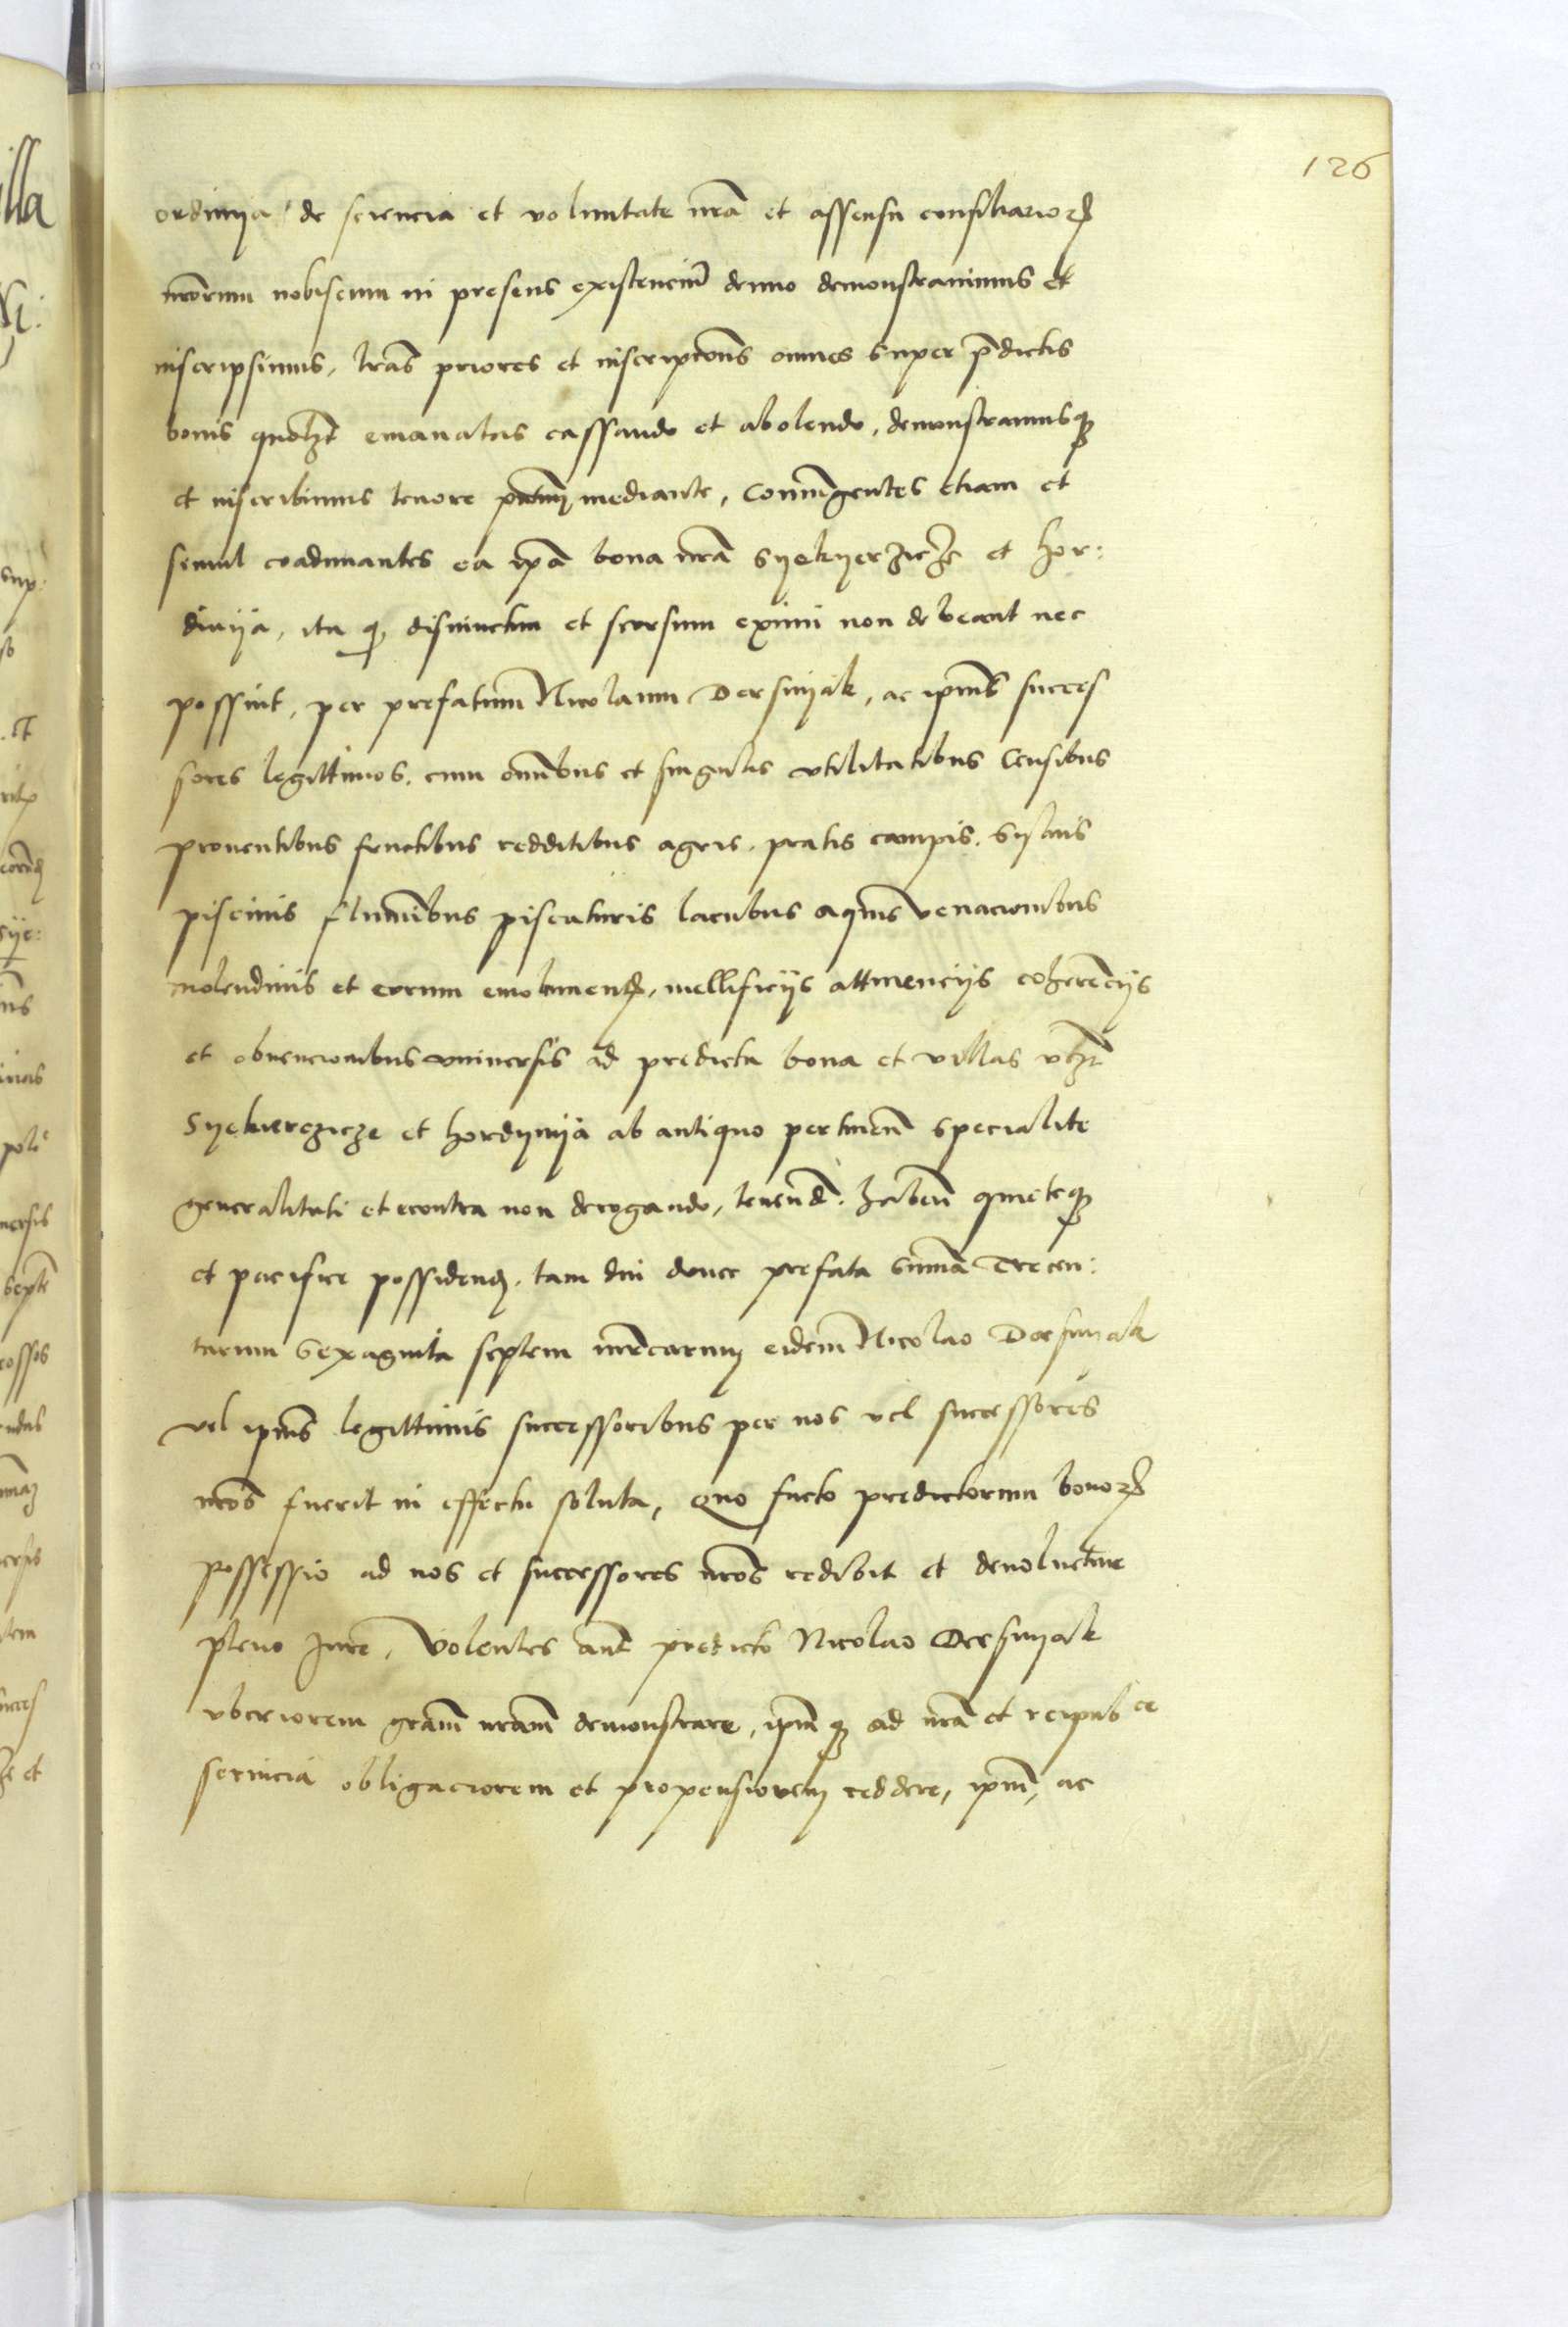 126
ordinya de sciencia et voluntate nrã et assensu consiliarioꝝ
nrõrum nobiscum in presens existenciũ denuo demonstrauimus et
inscripsimus, lrãs priores et inscripcões omnes super p̃dictis
bonis quolꝫt emanatas cassando et abolendo, demonstramusqꝫ
et inscribimus tenore pñtiuꝫ mediante, Coniũgentes etiam et
semul coadunantes ea ip̃a bona nrã Syekyerzicze et Hor:
dinya, ita qꝫ disiunctim et seorsum eximi non debeant nec
possint, per prefatum̃ Nicolaum Dersnyak, ac ipiu͂s succes
sores legittimos, cum om̃ibus et singulis vtilitatibus Censibus
prouentibus fructibus redditibus agris, pratis campis, syluis
piscinis flumĩbus piscaturis lacubus aquis venacionibus
molendinis et eorum emolumentꝭ, mellificijs attinencijs coherẽcijs
et obuencionibus vniuersis ad predicta bona et villas vtꝫ
Syekierzicze et Hordynya ab antiquo pertineñ specialite
generalitati et econtra non derogando, tenend̃ habeñ quieteqꝫ
et pacifice possidenꝭ, tam diu donec prefata sum̃a Trecen:
tarum sexaginta septem mr̃carum eidem̃ Nicolao Dersnyak
vel ipiu͂s legittimis successoribus per nos vel successores
nrõs fuerit in effectu soluta, Quo facto predictorum bonoꝝ
possessio ad nos et successores nrõs redibit et deuoluetur
pleno Jure, Volentes aut̃ predicto Nicolao Dersnyak
vberiorem gr̃am nrãm demonstrare, ip̃m qꝫ ad nrã et reipubce
seruicia obligaciorem et propensiorem reddere, ip̃m, ac